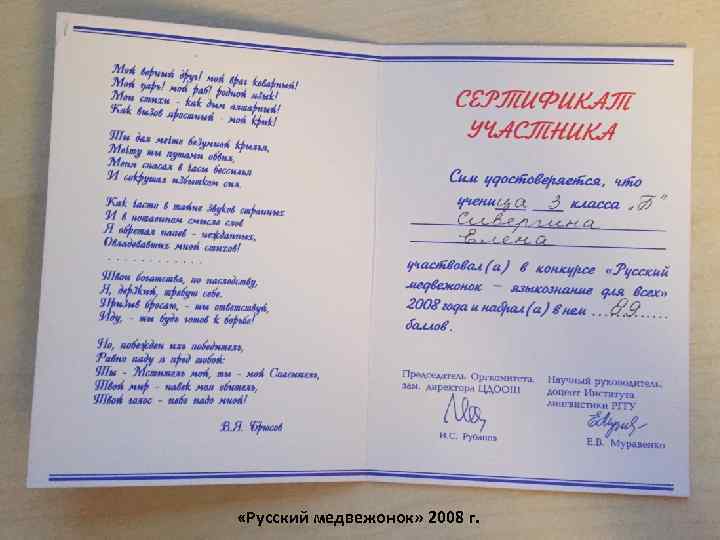 Мой верный друг! мой враг коварный!
Мой царь! мой раб! родной язык!
Мои стихи - как дым алтарный!
Как вызов яростный - мой крик!
Ты дал мечте безумной крылья,
Мечту ты путами обвил,
Меня спасал в часы бессилья
И сокрушал избытком сил.
Как часто в тайне звуков странных
И в потаенном смысле слов
Я обретал напев - нежданных,
Овладевавших мной стихов!
. . . . . . . . . . . .
Твои богатства, по наследству,
Я, дерзкий, требую себе.
Призыв бросаю, - ты ответствуй,
Иду, - ты будь готов к борьбе!
Но, побежден иль победитель,
Равно паду я пред тобой:
Ты - Мститель мой, ты - мой Спаситель,
Твой мир - навек моя обитель,
Твой голос - небо надо мной!
В.Я. Брюсов
СЕРТИФИКАТ
УЧАСТНИКА
Сим удостоверяется, что
ученица 3 класса „Б"
Сивергина
Елена
участвовал(а) в конкурсе «Русский
медвежонок – языкознание для всех»
2008 года и набрал(а) в нем ... ......
баллов.
Председатель Оргкомитета,
зам. директора ЦДООШ
И.С. Рубанов
Научный руководитель,
доцент Института
лингвистики РГГУ
Е.В. Муравенко
«Русский медвежонок» 2008 г.